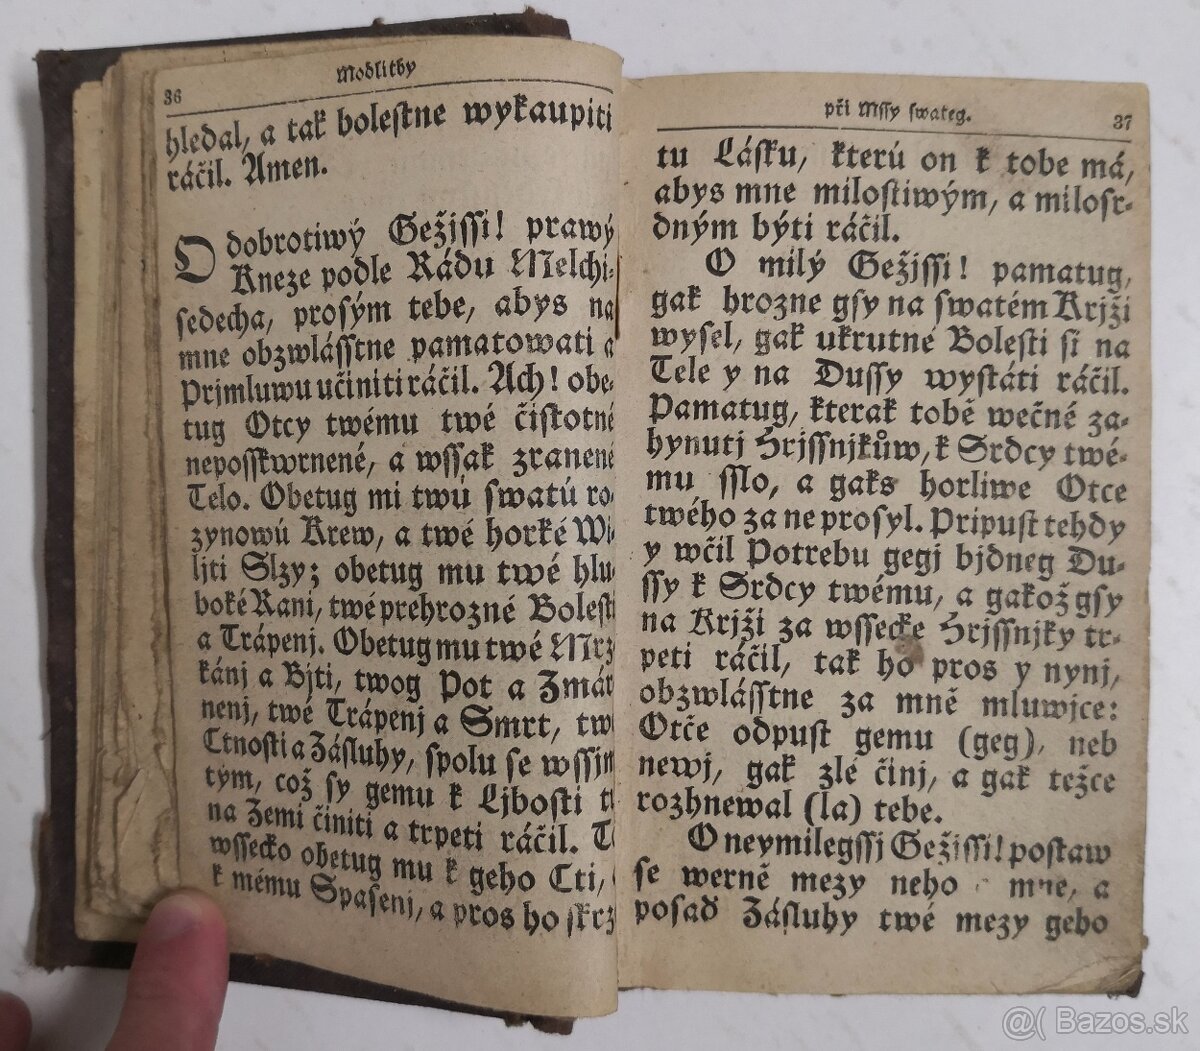 36
Modlitby
hledal, a tak bolestne wykaupiti
ráčil. Amen.
O dobrotiwý Gežissi! prawý
Kneze podle Rádu Melchi-
sedecha, prosým tebe, abys na
mne obzwlásstne pamatowati a
Prjmluwu učiniti ráčil. Ach! obe-
tug Otcy twému twé čistotné
neposskwrnené, a wssak zranené
Telo. Obetug mi twú swatú ro-
zynowú Krew, a twé horké Wi-
ljti Slzy; obetug mu twé hlu-
boké Rani, twé prehrozné Bolesti
a Trápenj. Obetug mu twé Mrz-
kánj a Bjti, twog Pot a Zmár-
nenj, twé Trápenj a Smrt, twé
Ctnosti a Zásluhy, spolu se wssjm
tým, což sy gemu k Ljbosti
na Zemi činiti a trpeti ráčil.
wssecko obetug mu k geho Cti,
k mému Spasenj, a pros ho skrz
při Mssy swateg.
37
tu Lásku, kterú on k tobe má,
abys mne milostiwým, a milosr-
dným býti ráčil.
O milý Gežjssi! pamatug,
gak hrozne gsy na swatém Krjži
wysel, gak ukrutné Bolesti si na
Tele y na Dussy wystáti ráčil.
Pamatug, kterak tobě wečné za-
hynutj Hrjssnjkůw, k Srdcy twé-
mu sslo, a gaks horliwe Otce
twého za ne prosyl. Pripust tehdy
y wčil Potrebu gegj bjdneg Du-
ssy k Srdcy twému, a gakož gsy
na Krjži za wssecke Hrjssnjky tr-
peti ráčil, tak ho pros y nynj,
obzwlásstne za mně mluwjce:
Otče odpust gemu (geg), neb
newj, gak zlé činj, a gak težce
rozhnewal (la) tebe.
O neymilegssj Gežissi! postaw
se werně mezy neho mne, a
posad Zásluhy twé mezy geho
@( Bazos.sk